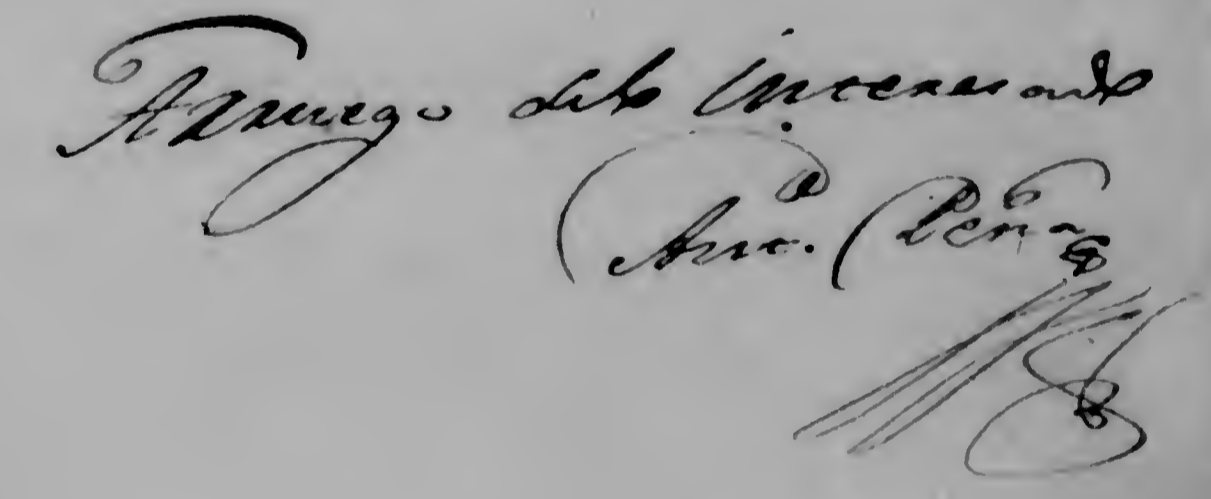 A rruego delo interesado
Anto. Peña